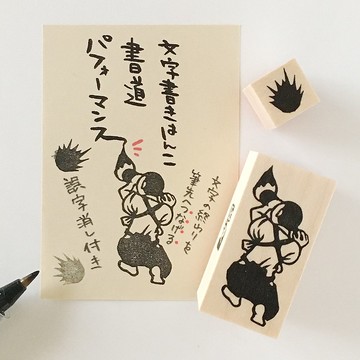 文字書きはんこ
書道
パフォーマンス
文字の終わりを
筆先へつなげる
誤字消し付き